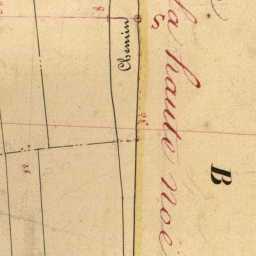 Chemin
la haute Noë
B